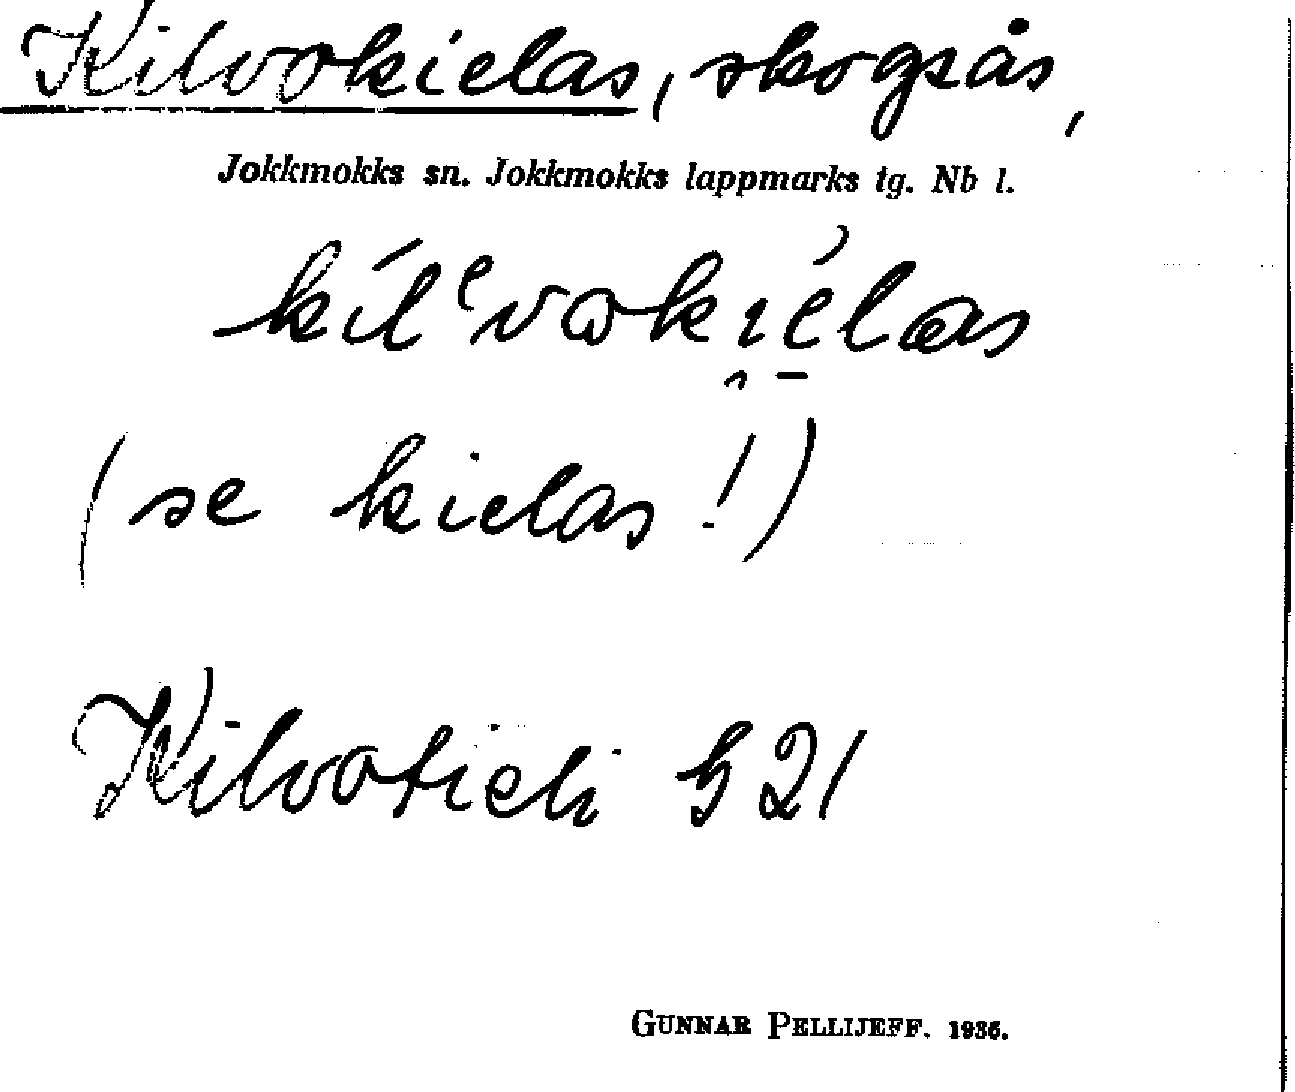 Kilvokielas, skogsås,
Jokkmokks sn. Jokkmokks lappmarks tg. Nb l.
(se kielas!)
Kilvotieli h 21
GUNNAR PELLIJEFF. 1936.